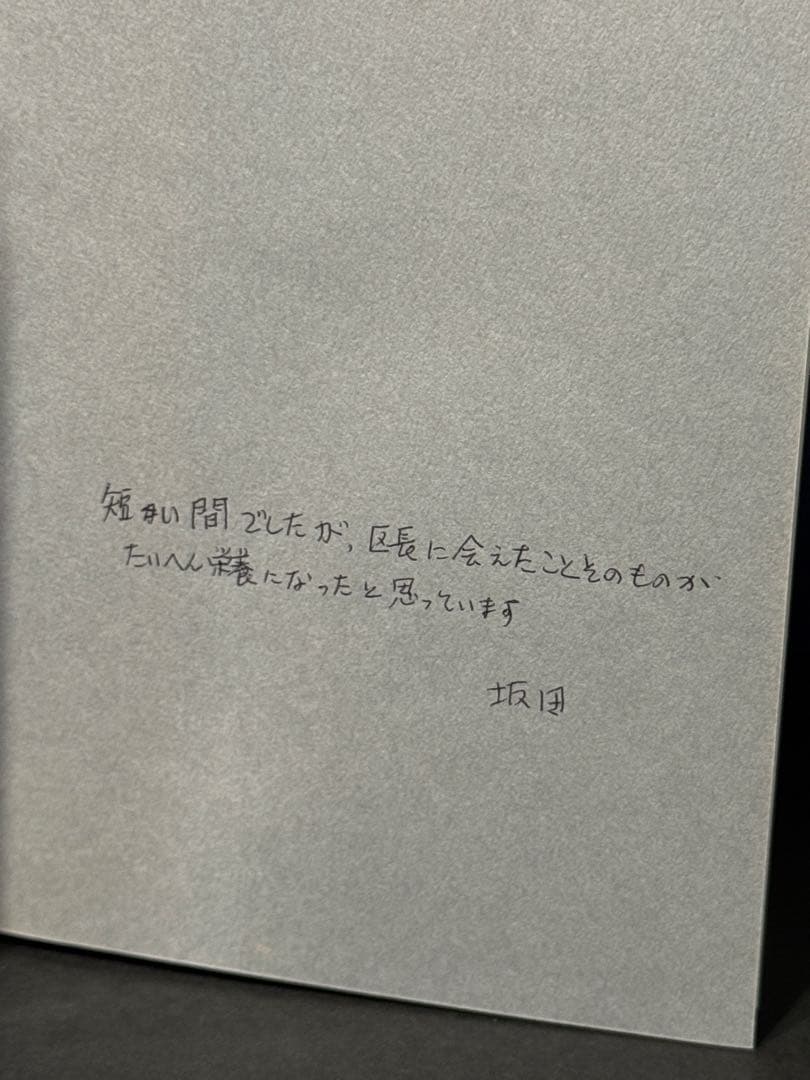 短い間でしたが、区長に会えたことそのものが
たいへん栄養になったと思っています
坂田